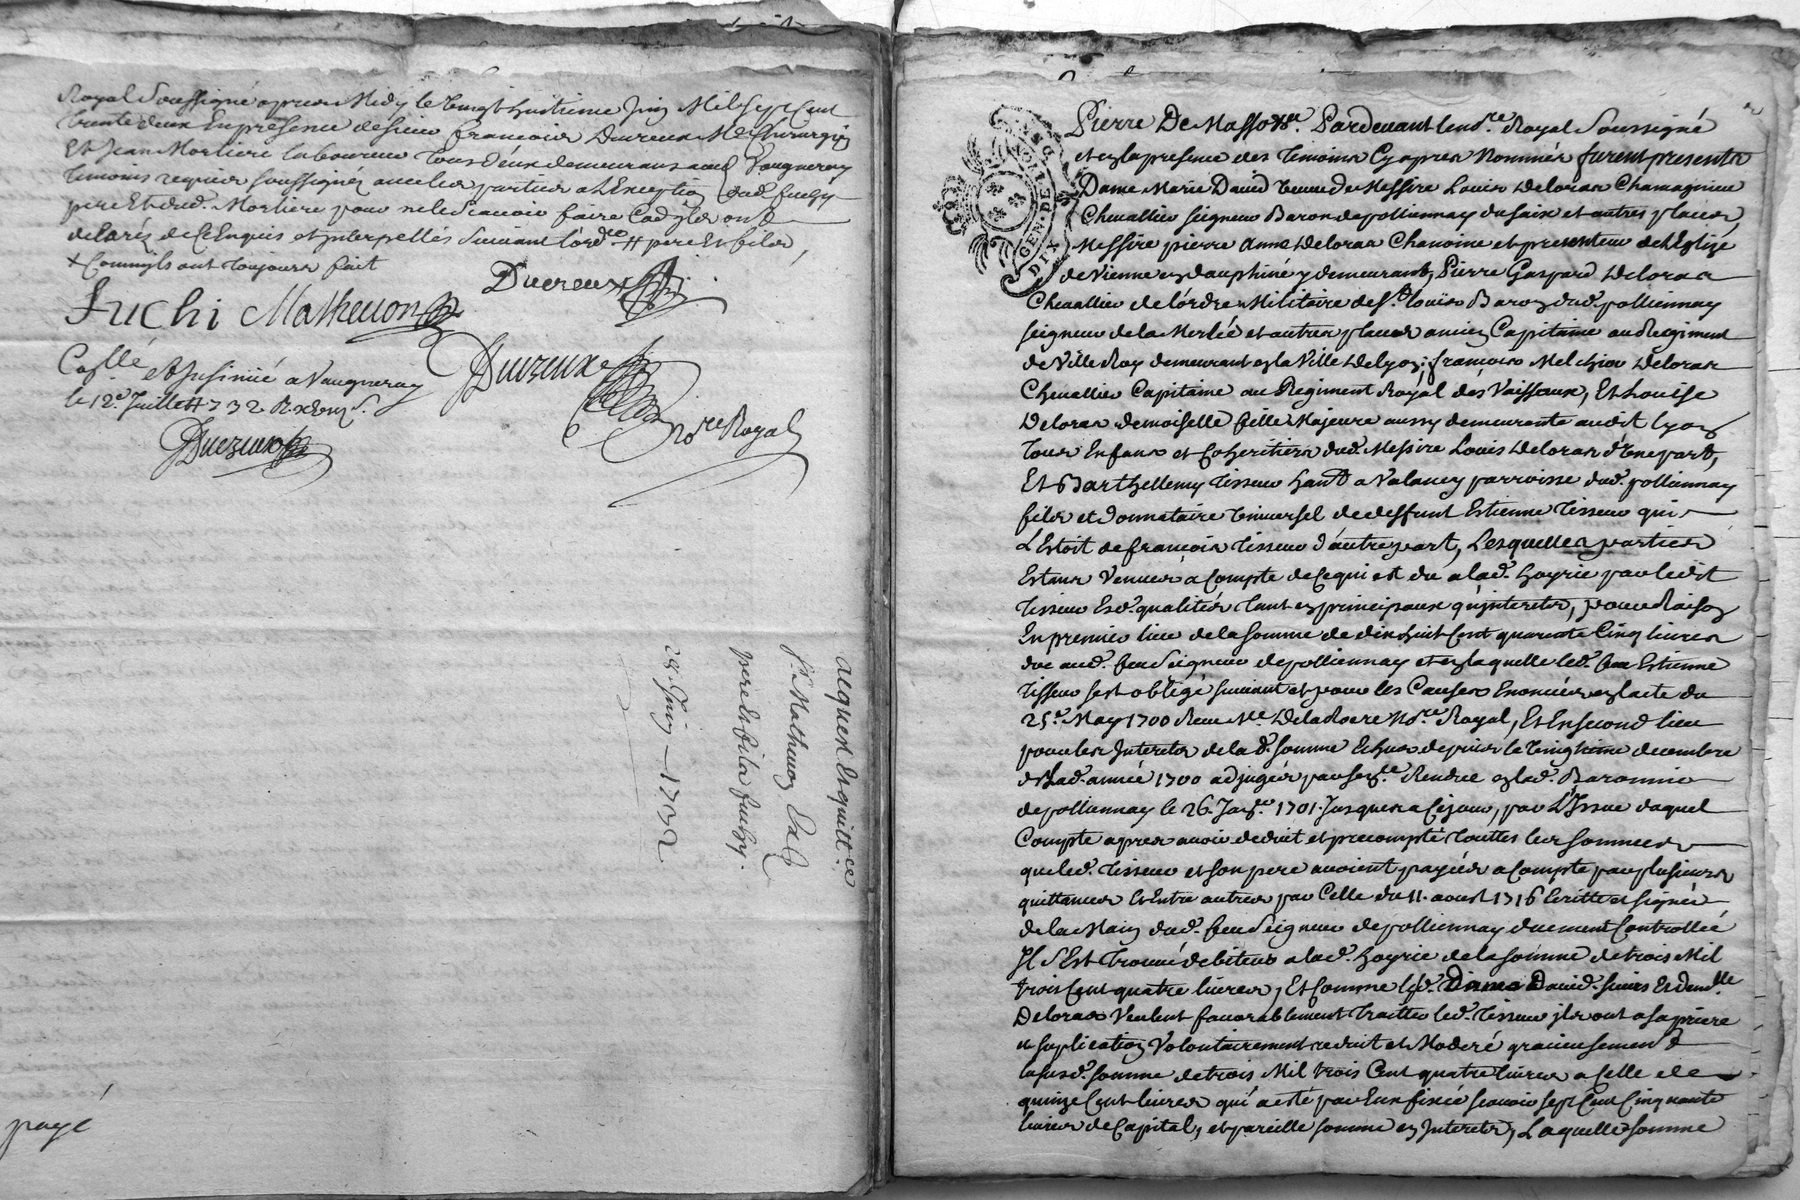 Royal Soussigné apres Midy le vingt huitieme Juin Mil sept Cent
trente deux En presence de sieur francois Ducreux Me Chirurgien
Et Jean Morliere laboureur tous deux demeurans aud. Vaugneray
temoins requis soussignéz avec les parties a L'Exception dud. fuchy
pere Et dud. Morliere pour ne le scavoir faire
de ce Enquis et Interpellés Suivant l'ord.ce pere Et fils
+ Comm'ils ont toujours fait
fuchi Matheuon
Ducreux
Ducreux
no.re Royal
Coƒllé et Insinué a Vaugneray
le 12.e Juillet 1732
Ducreux
acquest Et quitt.ce
Matheuon
pere Et fils fuchy.
28. Juin 1732
payé
GEN. DE LYON
DIX
Pierre De Masso Pardevant le no.re Royal Soussigné
et en la presence des temoins Cy apres Nommés furent presents
Dame Marie David veuve de Messire Louis Deloras Chamagnieu
Chevallier seigneur Baron de pollionnay du saix et autres places,
Messire pierre Anne Deloras Chanoine et presenteur de L'Eglize
de Vienne en dauphiné y demeurant, Pierre Gaspard Deloras
Chevallier de l'ordre Militaire de St. louis Baron dud. pollionnay
seigneur de la Merlée et autres places ancien Capitaine au Regiment
de Ville Roy demeurant en la Ville de Lyon; francois Melchior Deloras
Chevallier Capitaine au Regiment Royal des Vaisseaux, Et Louise
Deloras demoiselle fille Majeure aussy demeurante audit lyon
tous Enfans et Coheritiers dud. Messire Louis Deloras d'Une part,
Et Barthellemy Tisseur hant. a Valancy parroisse dud. pollionnay
fils et donnataire universel de deffunt Estienne Tisseur qui
L'Estoit de francois Tisseur d'autre part, Lesquelles parties
Estans Venues a Compte de Ce qui est du a lad. hoyrie par ledit
Tisseur Esd. qualités tant en principaux qu'jnterets, pour Raison
En premier lieu de la somme de dix huit Cent quarante Cinq livres
due aud. feu Seigneur de pollionnay et en laquelle led. feu Estienne
Tisseur s'est obligé suivant et pour les Causes Enoncées en l'acte du
25.e May 1700 Receu Me Delaroere No.re Royal, Et En second lieu
pour les Interets de lad. somme Echus depuis le vingtieme decembre
de lad. année 1700 adjugés par sen.ce Rendue en lad. Baronnie
de pollionnay le 26. Jan.er 1701. Jusques a Cejour, par L'Issue duquel
Compte apres avoir deduit et precompté touttes les sommes
que led. Tisseur et son pere avoient payées a compte par plusieurs
quittances Et Entre autres par Celle du 11. aoust 1716 Ecritte et signée
de la Main dud. feu Seigneur de pollionnay duement Controllée
Il s'Est trouvé debiteur a lad. hoyrie de la somme de trois Mil
trois Cent quatre livres, Et Comme lesd. Dame David. sieurs Et dem.lle
Deloras Veulent favorablement traitter led. Tisseur jls ont a sa priere
et suplication Volontairement reduit et Moderé gracieusement
la susd. somme de trois Mil trois Cent quatre livres a Celle de
quinze Cent livres qui a esté par Eux fixée scavoir sept Cent Cinquante
livres de Capital, et pareille somme en Interets, Laquelle somme